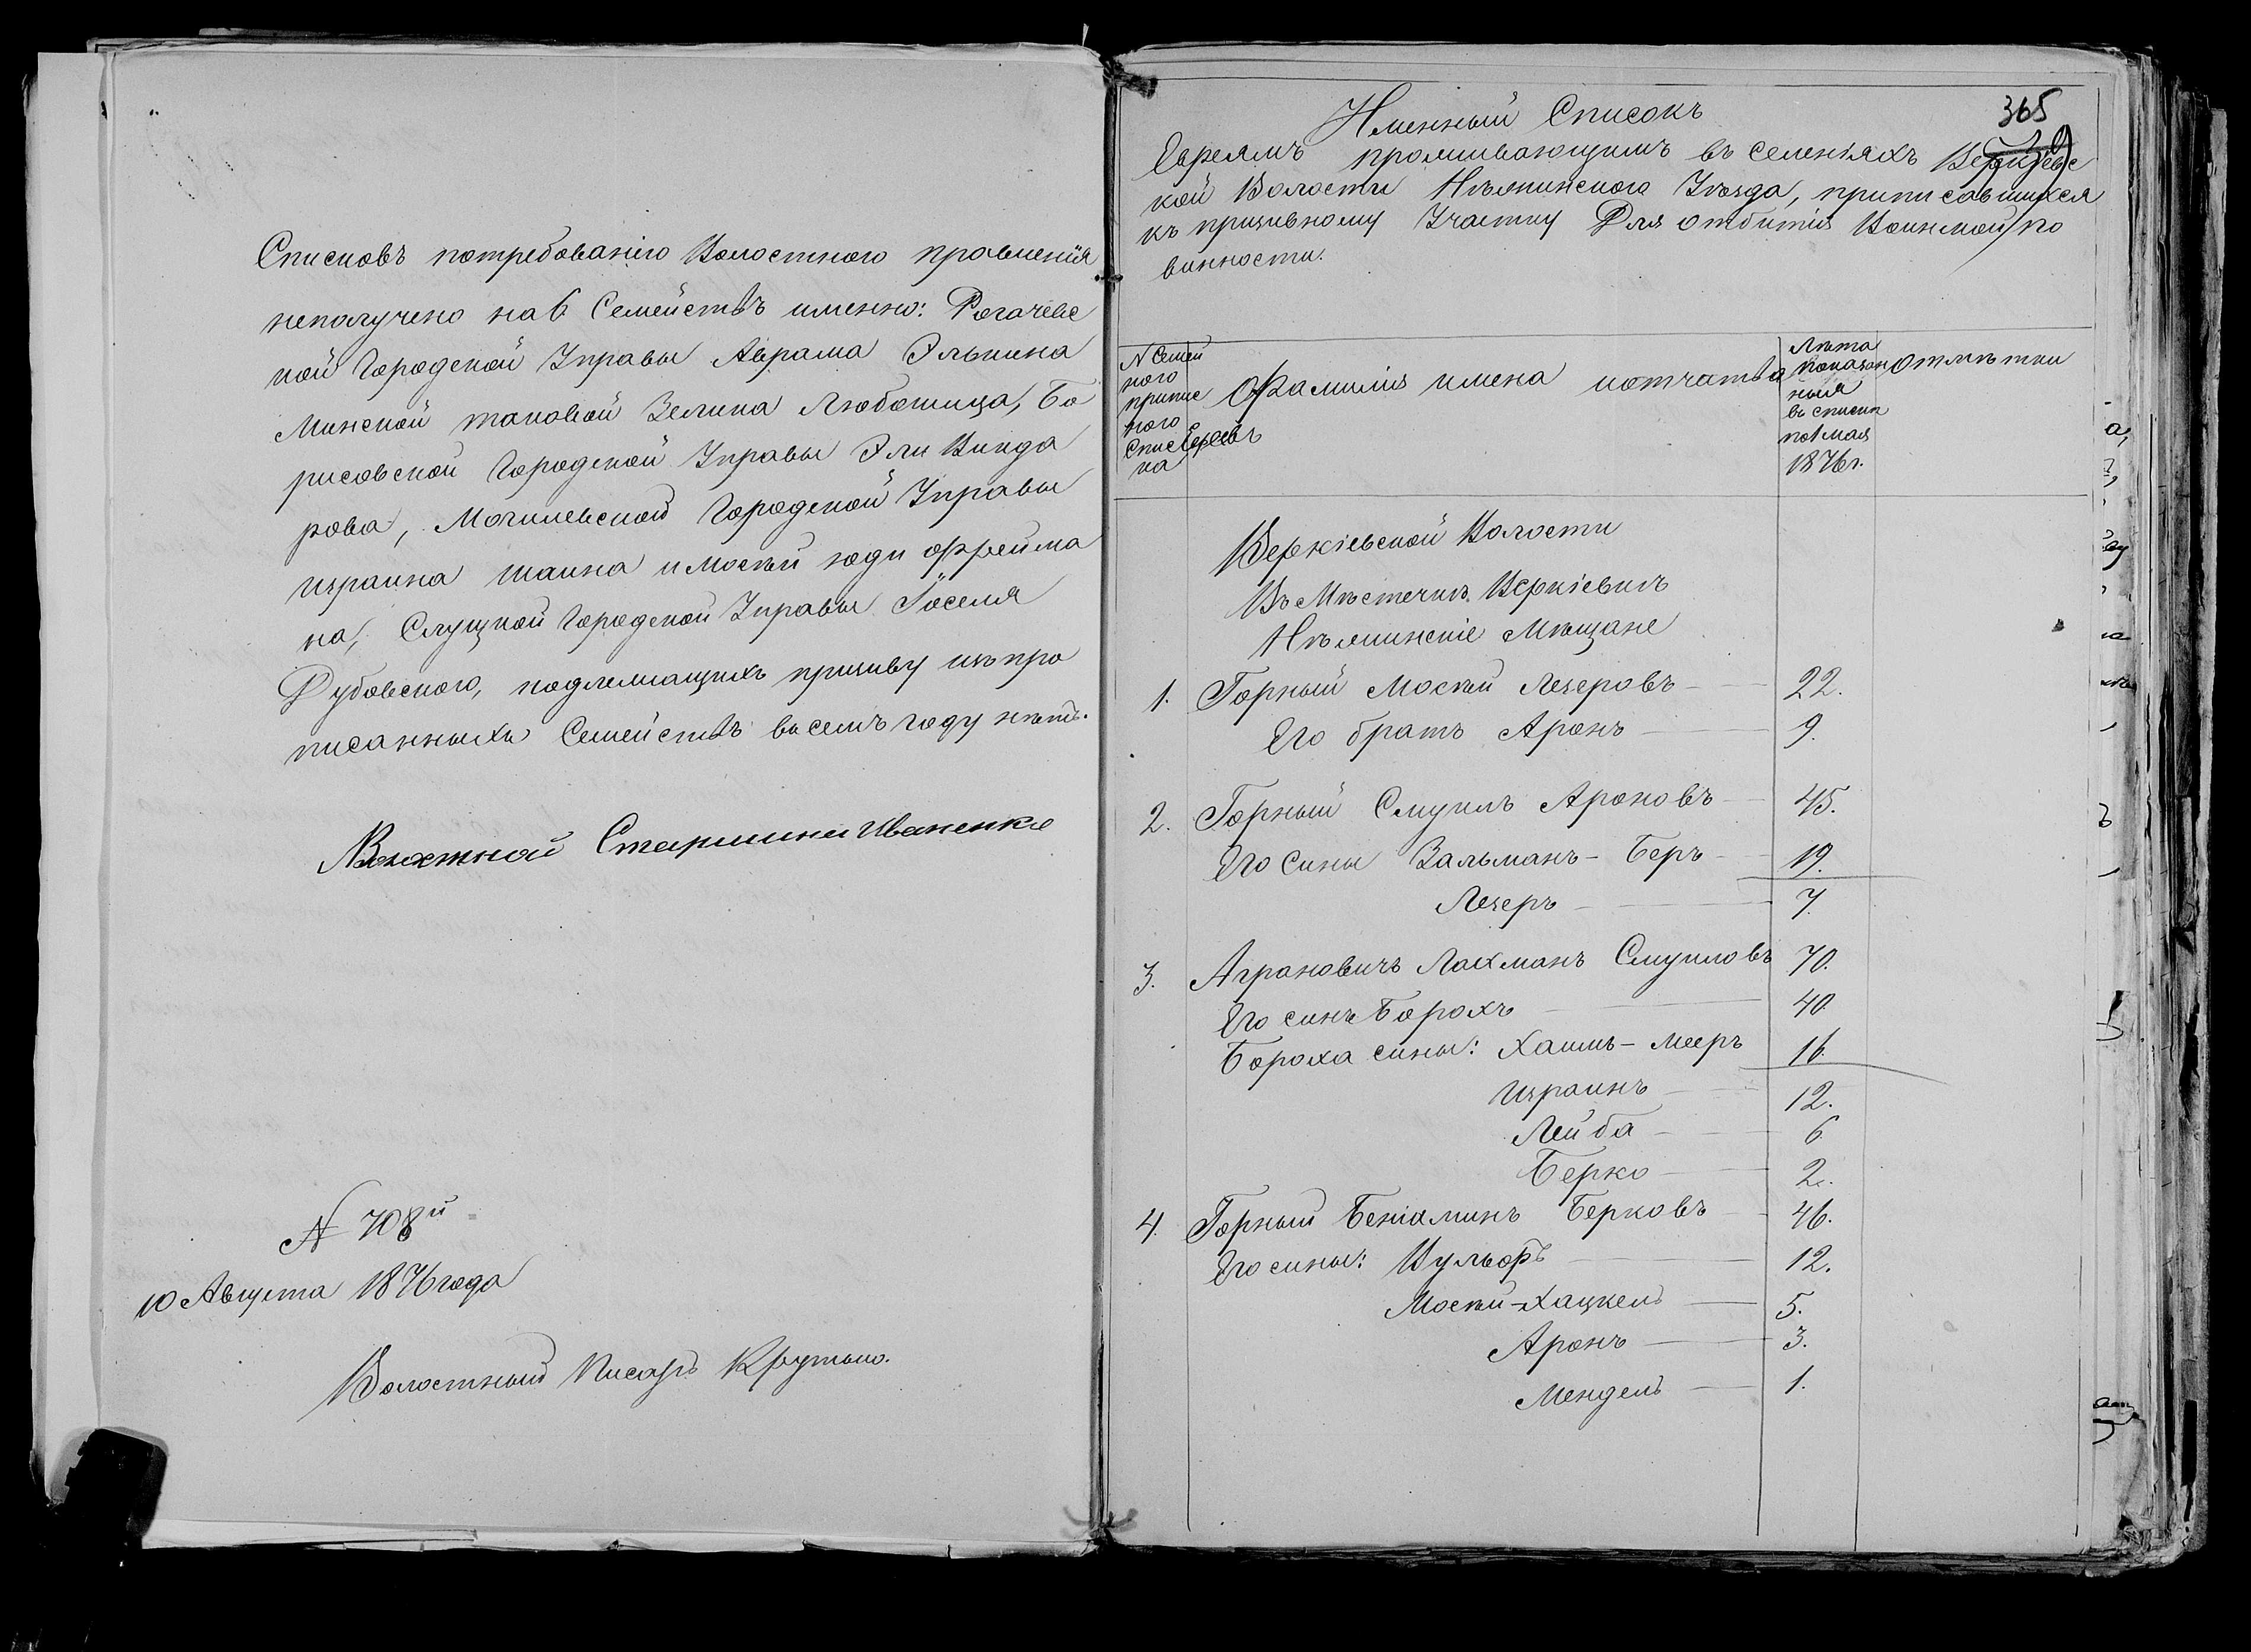 Списковъ потребованію Волостного правленія
неполучено на 6 Семействъ именно: Рогачевс
кой Городской Управы Аврама Элькина
Минской таковой Зелика Любошица, Бо
рисовской Городской Управы Эли Винда
рова, Могилевской Городской Управы
Израиля Шаина и Мосѣй Юды Фрейма
на, Слуцкой Городской Управы Іоселя
Дубовского, подлежащихъ призыву изъ про
писанныхъ Семействъ въ семъ году нѣтъ.
Волостной Старшина Иваненко
№ 708й
10 Августа 1876 года
Волостный Писарь
365
Именный Списокъ
Евреямъ проживающимъ въ селеніяхъ Веркіевс
кой Волости Нѣжинского Уѣзда, приписавшихся
къ призивному Участку Для отбитія Воинской по
винности.
№ Семей
ного
припис
ного
Спис
ка
Фамилія имена иотчатва
Евреевъ
Лѣта
показан
ныя
въ списк
по 1 мая
1876 г.
Отмѣтки
Веркіевской Волости
Въ Мѣстечкѣ Веркіевкѣ
Нѣжинскіе Мѣщане
1. Горный Мосѣй Лезеровъ 22.
Его братъ Аронъ 9.
2. Горный Смуилъ Ароновъ 45.
Его сины Зальманъ-Беръ 19.
Лезеръ 7.
3. Аграновичъ Лахманъ Смуиловъ 70.
Его синъ Борохъ 40.
Бороха сины: Хаимъ-Мееръ 16.
Израиль 12.
Лейба 6.
Берко 2.
4. Горный Беніаминъ Берковъ 46.
Его сины: Вульфъ 12.
Мосѣй-Хацкель 5.
Аронъ 3.
Мендель 1.